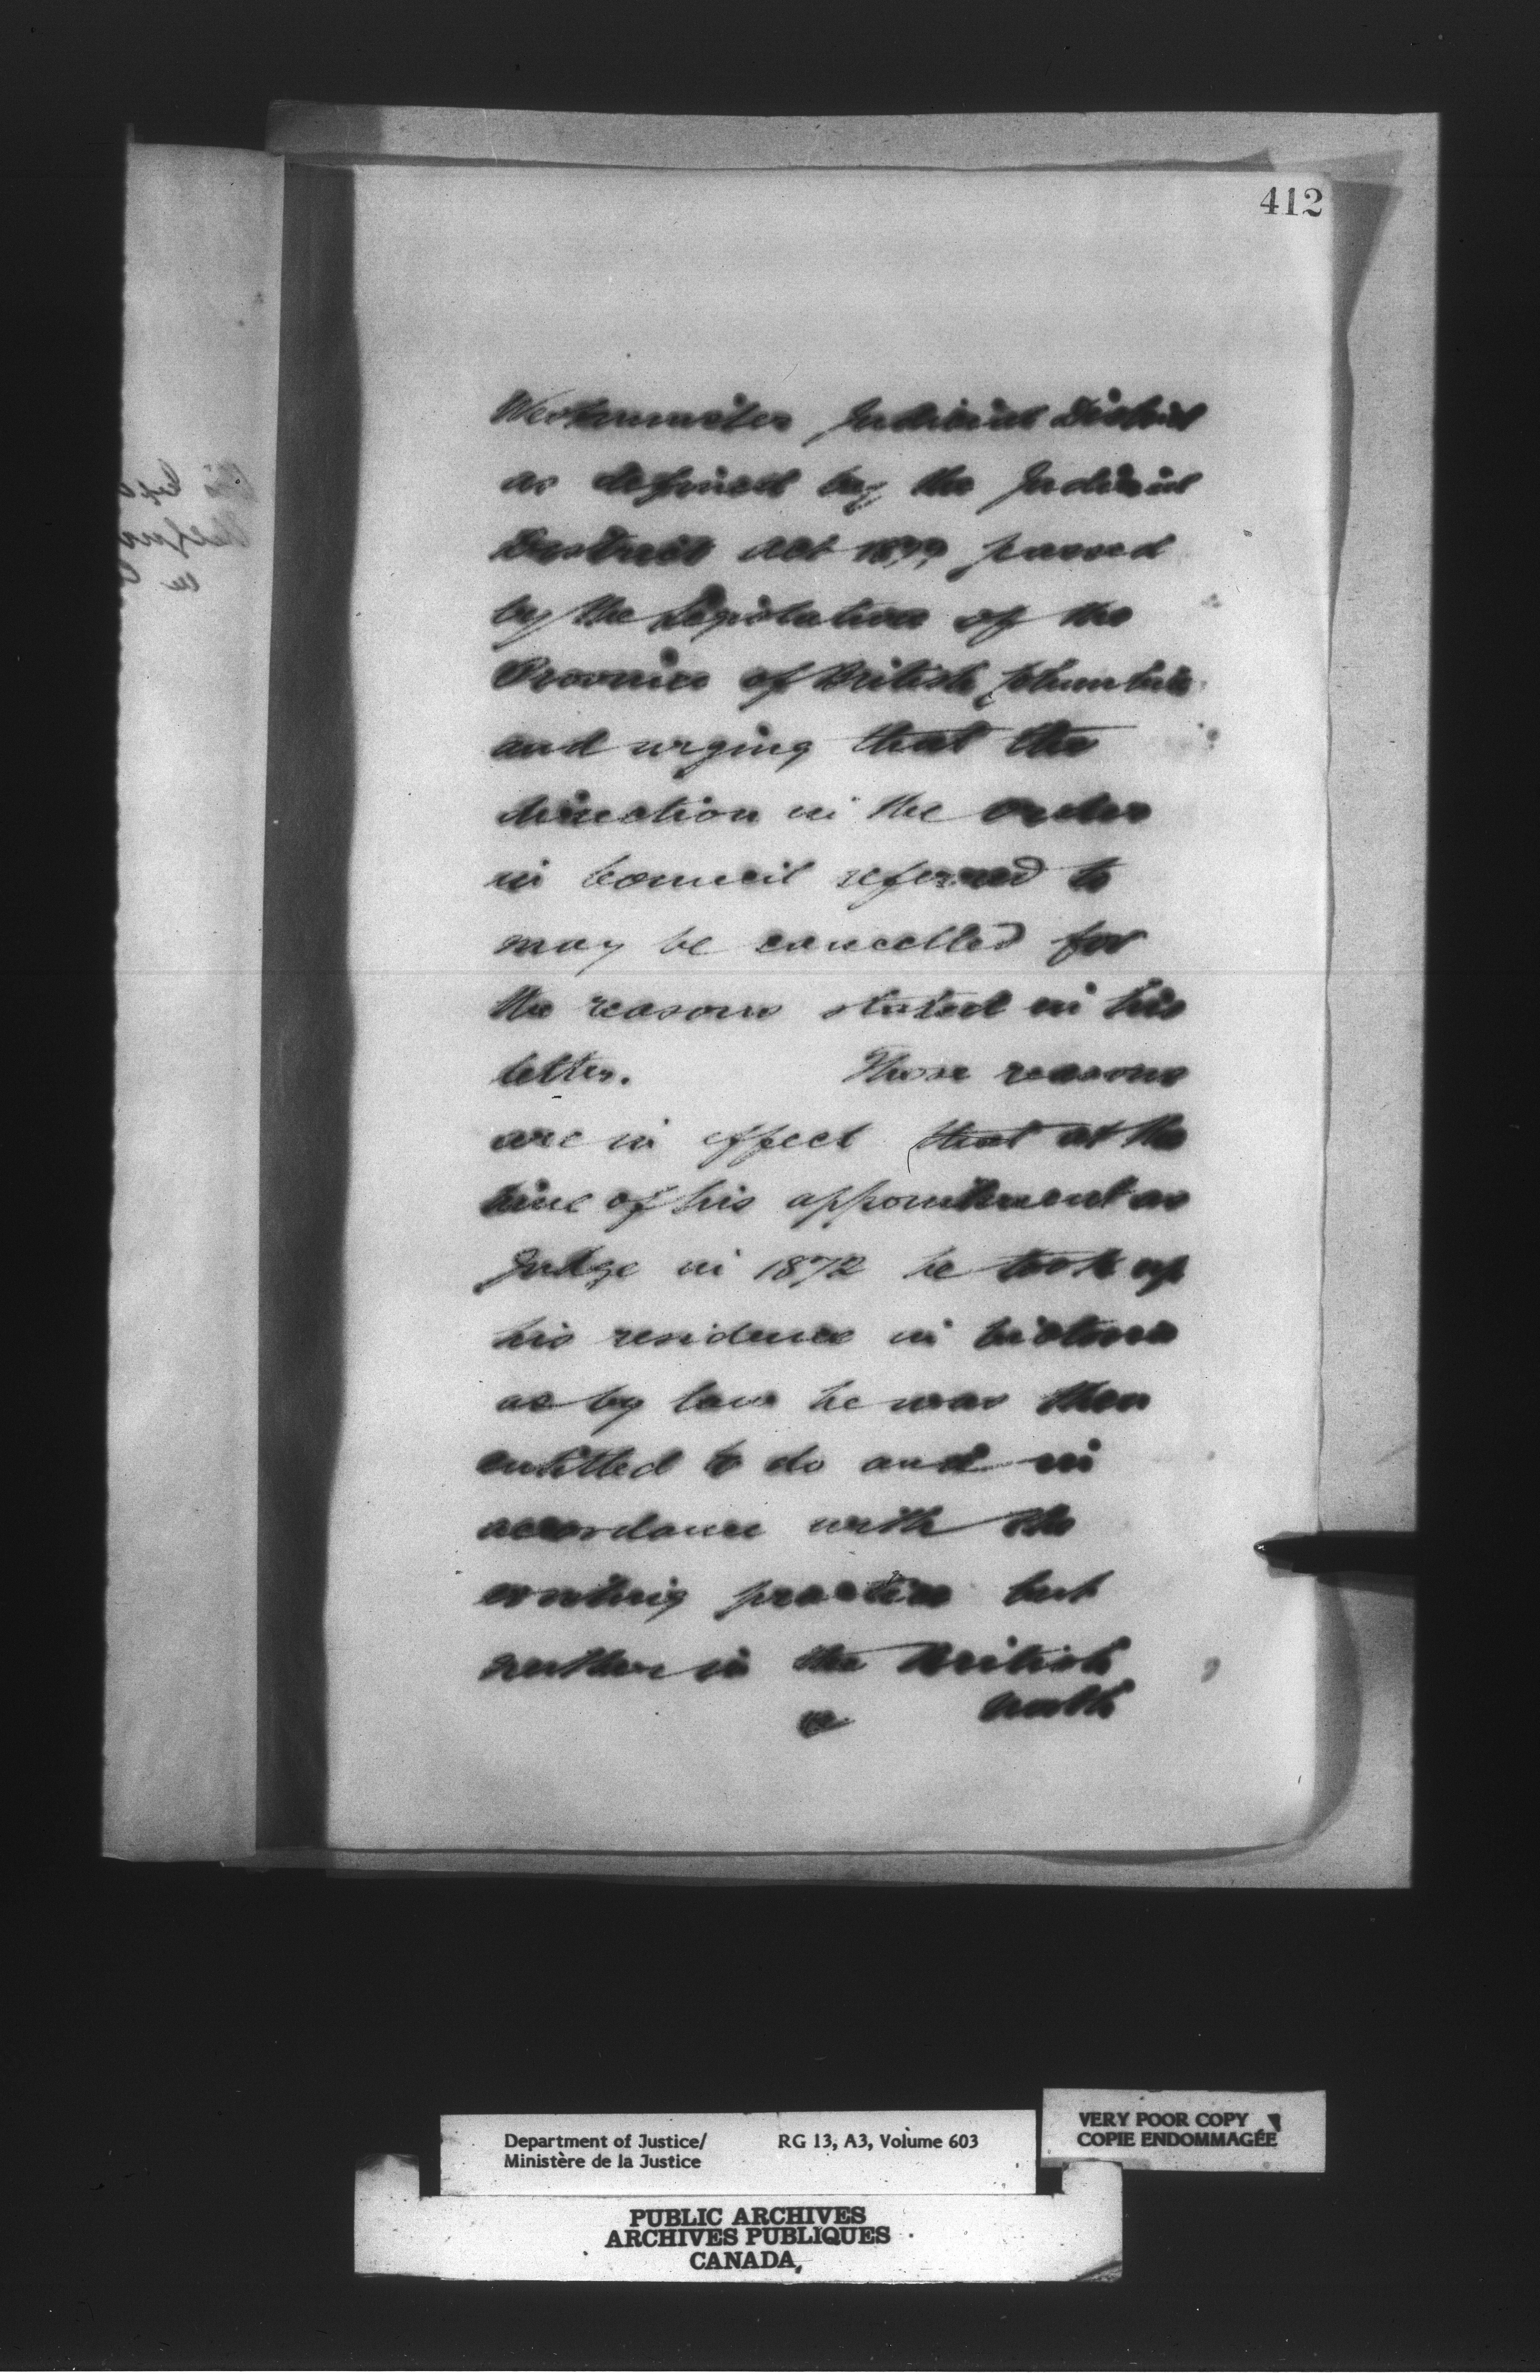 412
Westminster Judicial District
as defined by the Judicial
District Act 1879 passed
by the Legislature of the
Province of British Columbia
and urging that the
direction in the Order
in Council referred to
may be cancelled for
the reasons stated in his
letter. Those reasons
are in effect that at the
time of his appointment as
Judge in 1872 he took up
his residence in Victoria
as by law he was then
entitled to do and in
accordance with the
existing practice but
neither in the British
North
Department of Justice/ RG 13, A3, Volume 603
Ministère de la Justice
VERY POOR COPY
COPIE ENDOMMAGÉE
PUBLIC ARCHIVES
ARCHIVES PUBLIQUES
CANADA